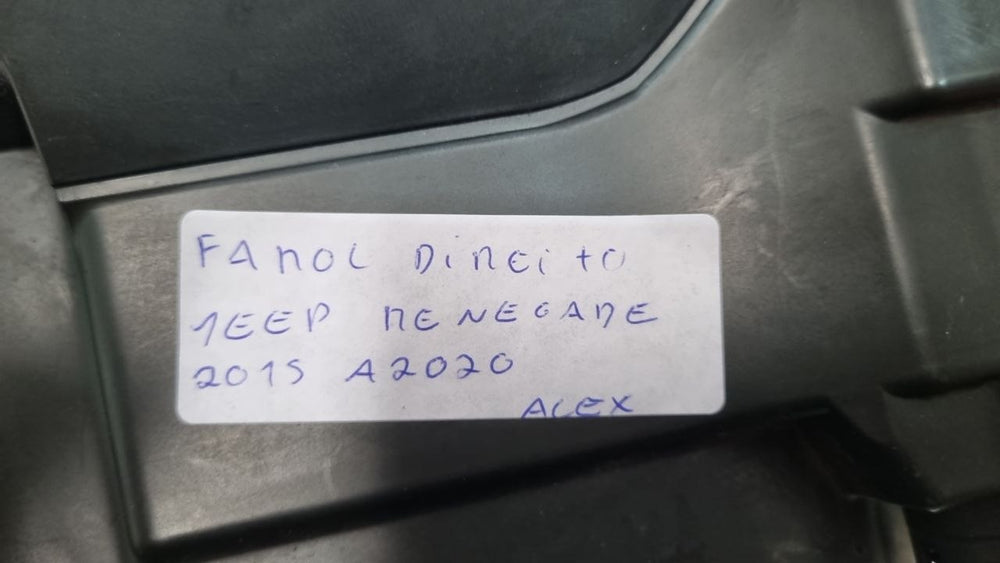 FAROL DIREITO
JEEP RENEGADE
2015 A 2020
ALEX